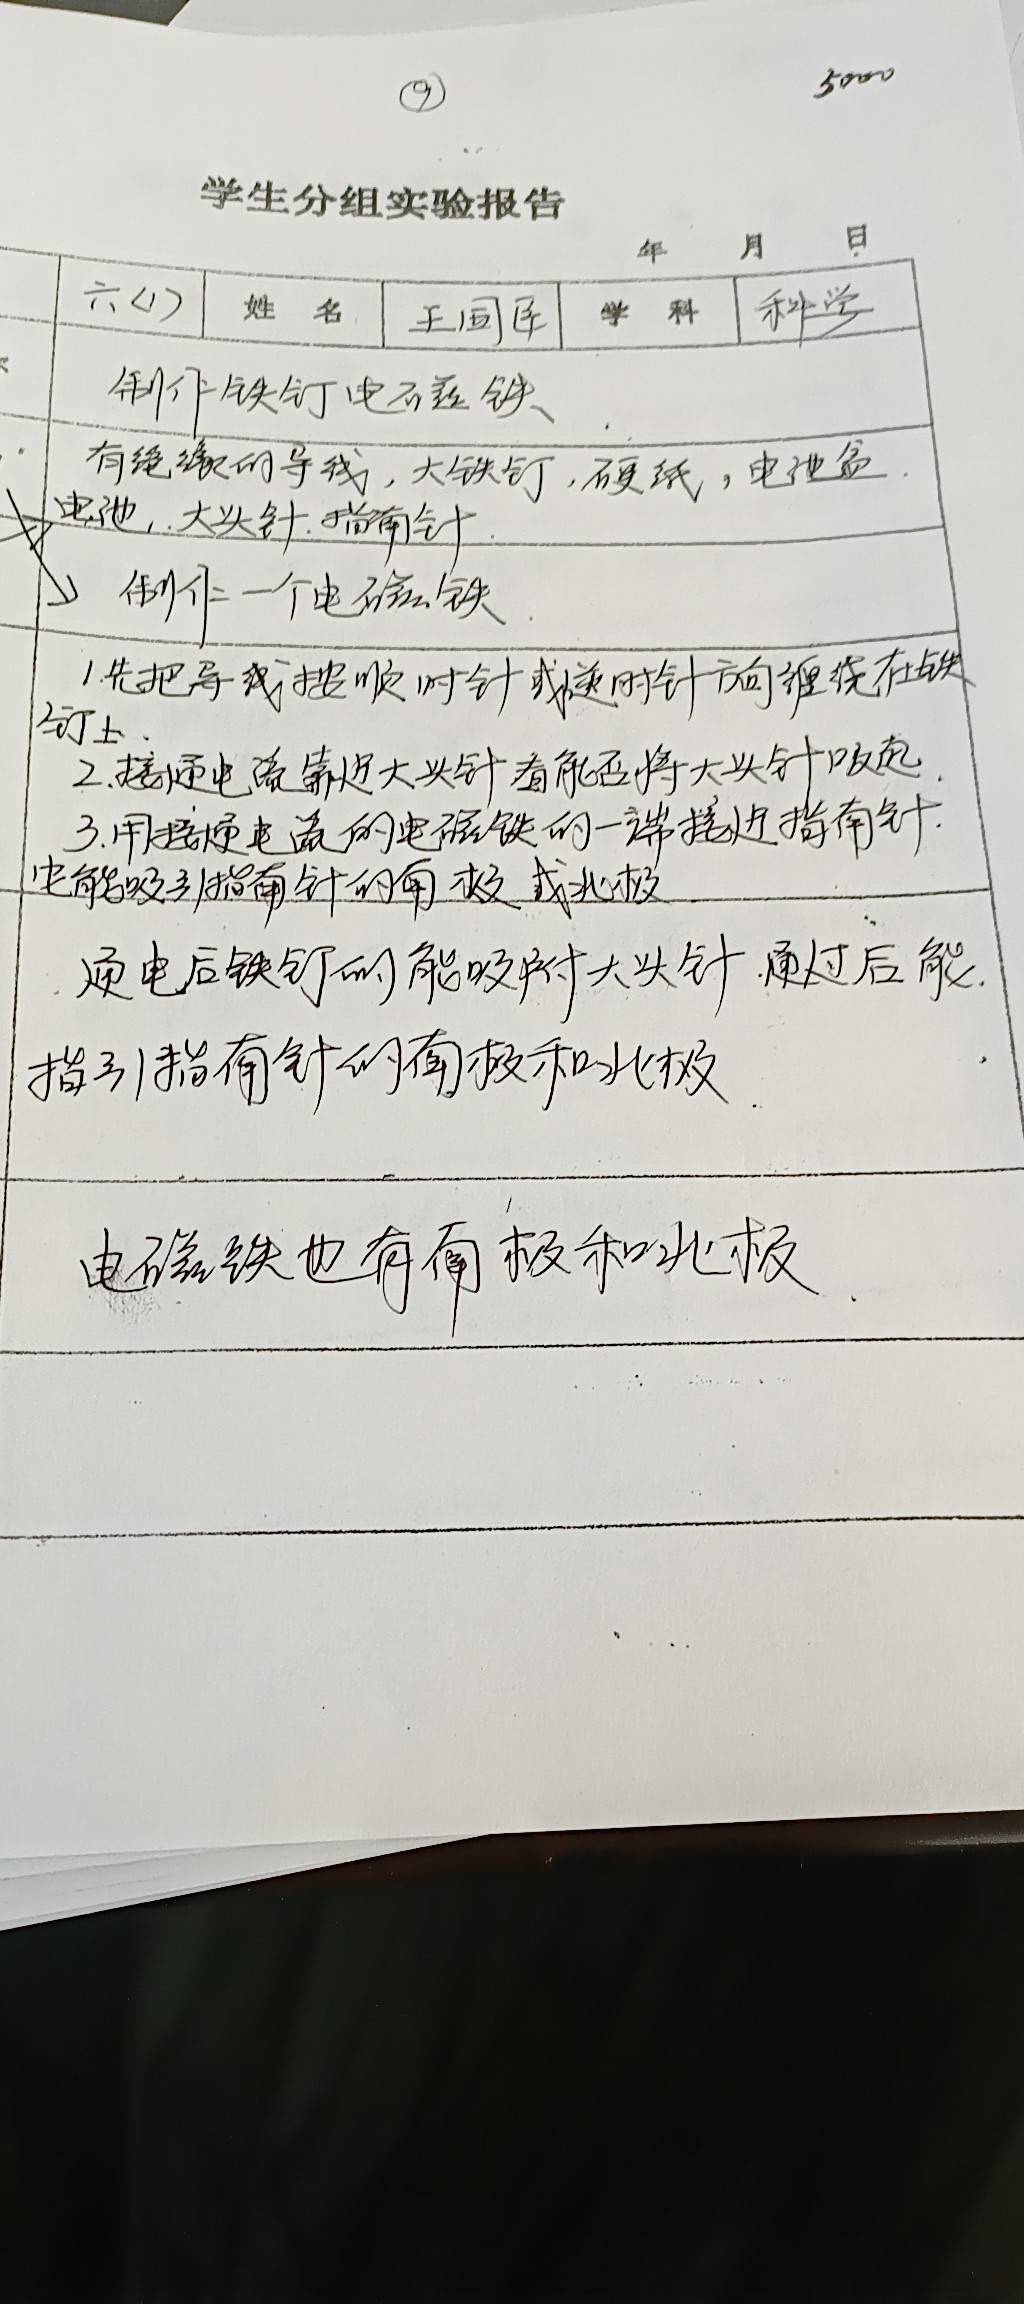 ⑨
5000
学生分组实验报告
年 月 日
六(1) 姓 名 王国庆 学 科 科学
制作铁钉电磁铁、
有绝缘的导线,大铁钉,硬纸,电池盒.
电池,大头针.指南针.
制作一个电磁铁.
1.先把导线按顺时针或逆时针方向缠绕在铁
钉上.
2.接通电流靠近大头针看能否将大头针吸起.
3.用接通电流的电磁铁的一端接近指南针.
它能吸引指南针的南极或北极
通电后铁钉的能吸附大头针.通过后能.
指引指南针的南极和北极.
电磁铁也有南极和北极.